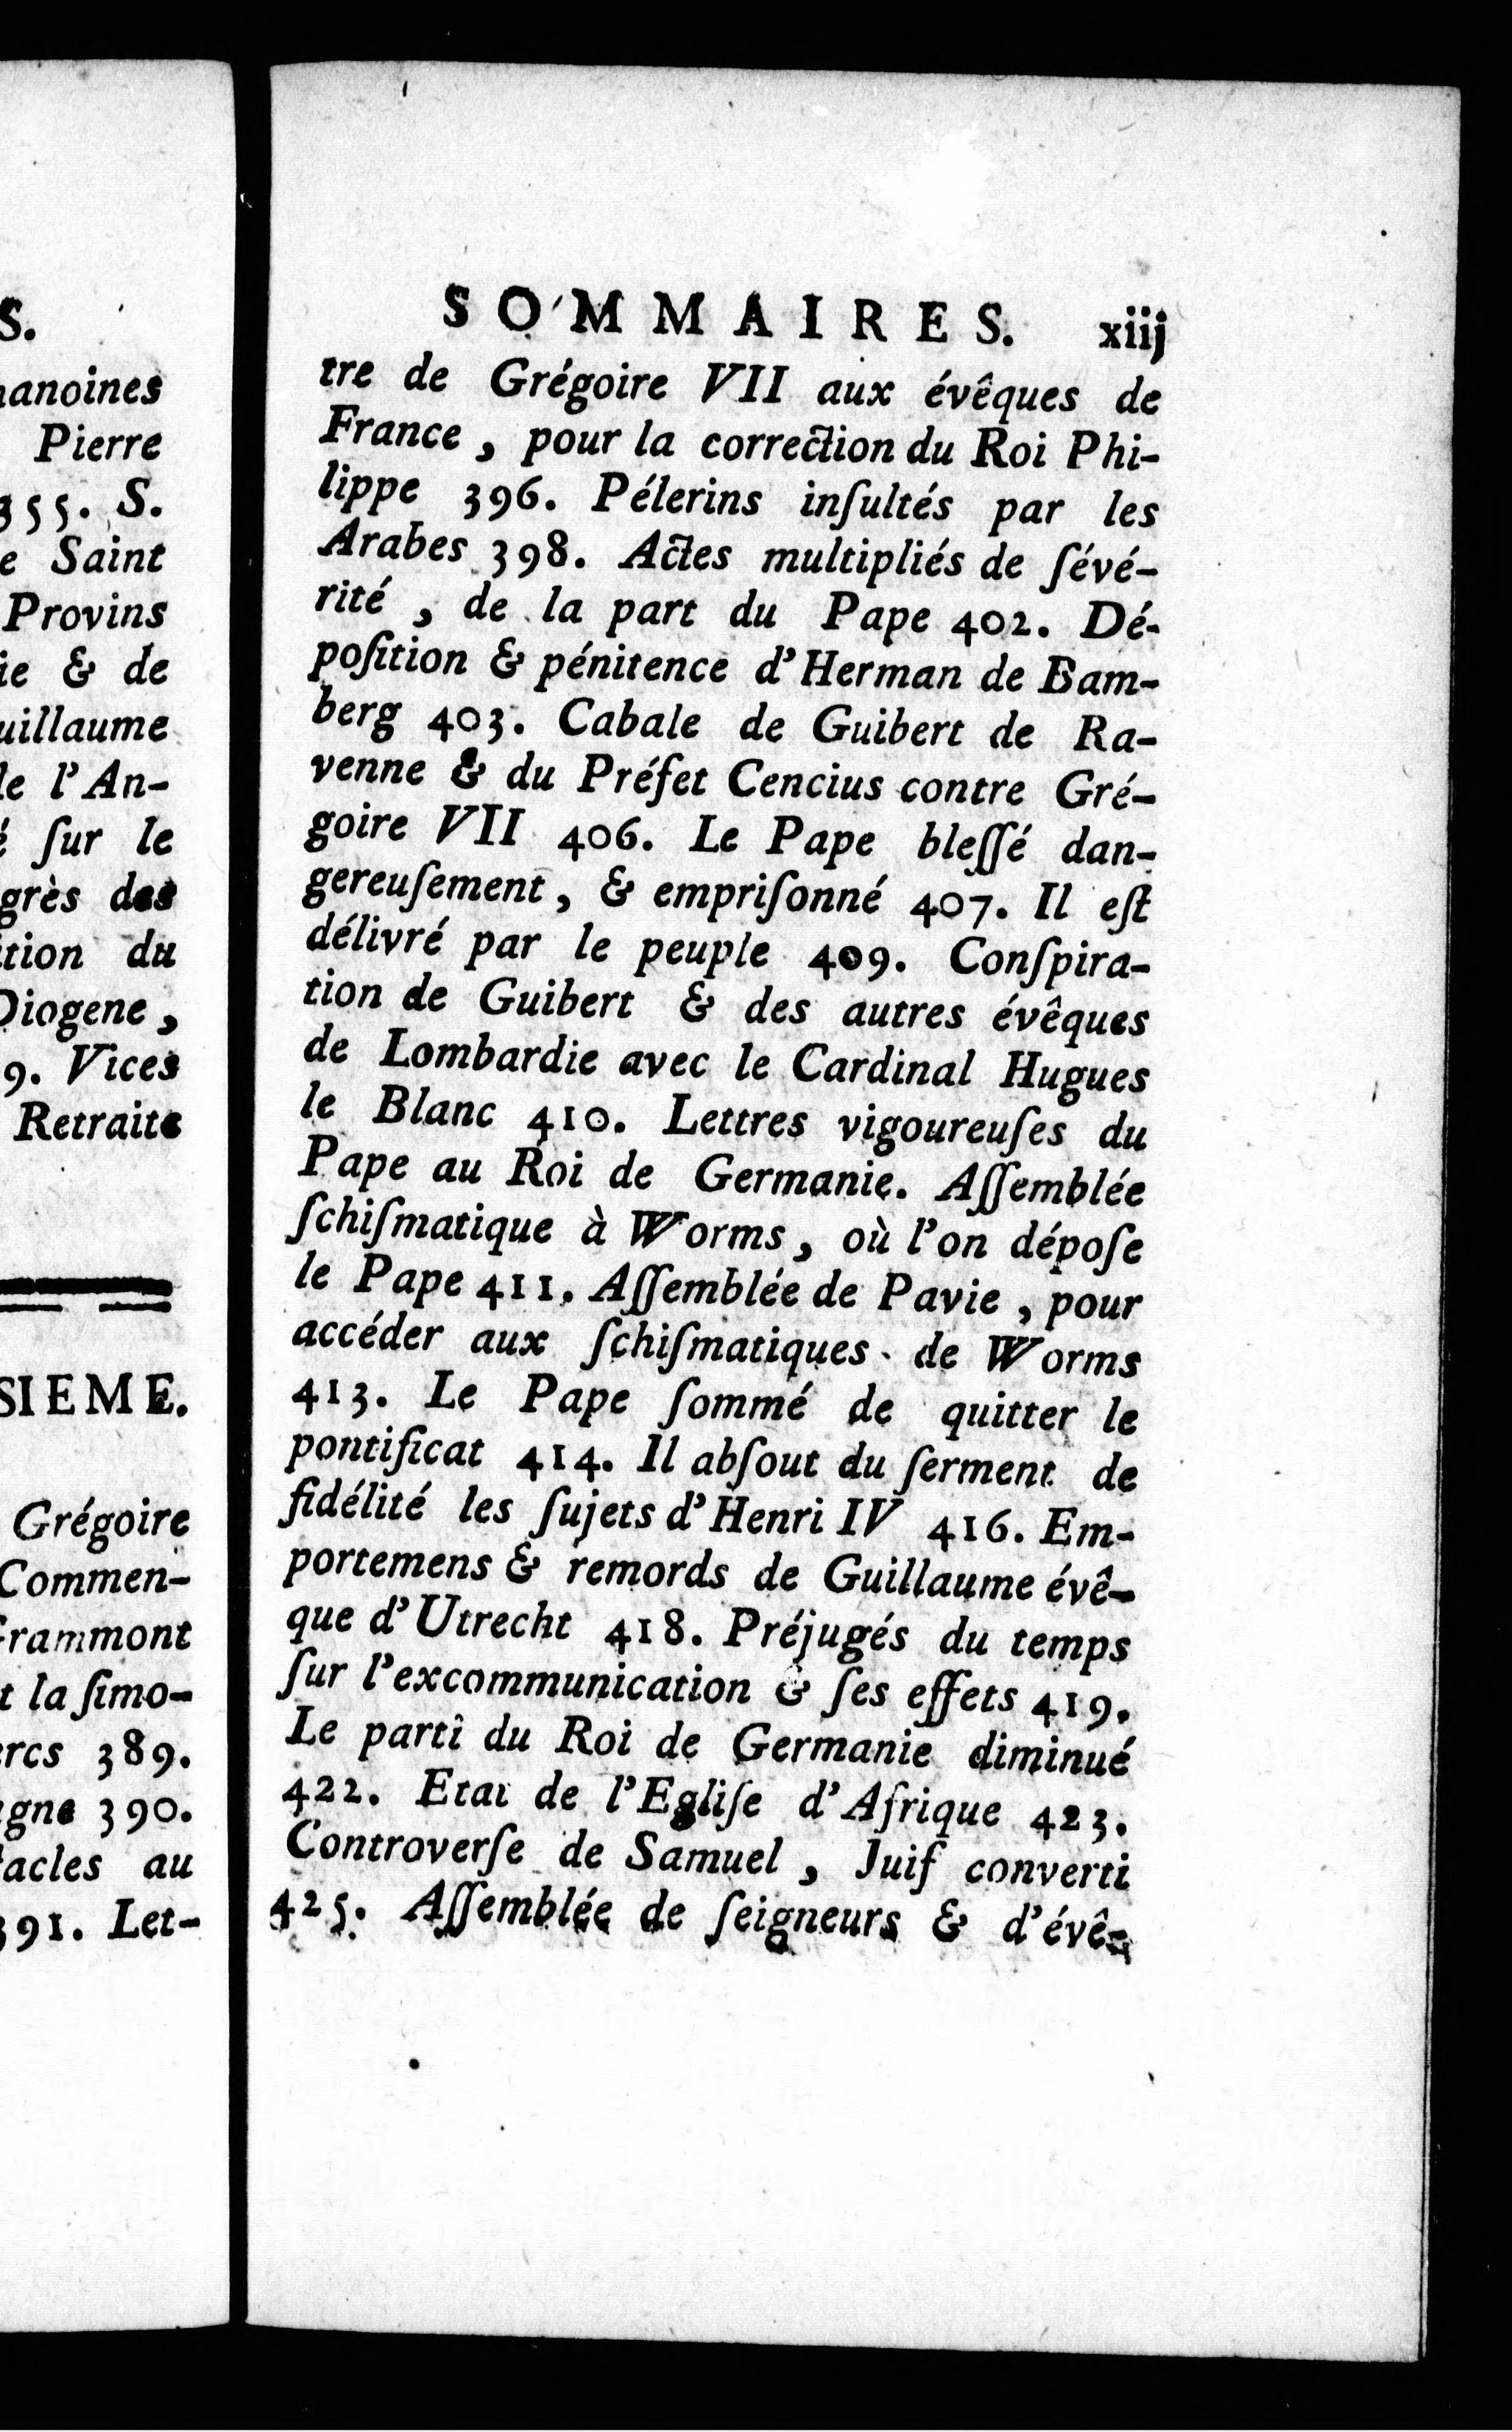 S.
hanoines
Pierre
355. S.
e Saint
Provins
ie & de
uillaume
de l'An-
é ſur le
grès des
ition du
Diogene,
9. Vices
Retraite
SIEME.
Grégoire
Commen-
Grammont
t la ſimo-
ercs 389.
agne 390.
tacles au
391. Let-
SOMMAIRES. xiij
tre de Grégoire VII aux évêques de
France, pour la correction du Roi Phi-
lippe 396. Pélerins inſultés par les
Arabes 398. Actes multipliés de ſévé-
rité, de la part du Pape 402. Dé-
poſition & pénitence d'Herman de Bam-
berg 403. Cabale de Guibert de Ra-
venne & du Préfet Cencius contre Gré-
goire VII 406. Le Pape bleſſé dan-
gereuſement, & empriſonné 407. Il eſt
délivré par le peuple 409. Conſpira-
tion de Guibert & des autres évêques
de Lombardie avec le Cardinal Hugues
le Blanc 410. Lettres vigoureuſes du
Pape au Roi de Germanie. Aſſemblée
ſchiſmatique à Worms, où l'on dépoſe
le Pape 411. Aſſemblée de Pavie, pour
accéder aux ſchiſmatiques de Worms
413. Le Pape ſommé de quitter le
pontificat 414. Il abſout du ſerment de
fidélité les ſujets d'Henri IV 416. Em-
portemens & remords de Guillaume évê-
que d'Utrecht 418. Préjugés du temps
ſur l'excommunication & ſes effets 419.
Le parti du Roi de Germanie diminué
422. Etat de l'Egliſe d'Afrique 423.
Controverſe de Samuel, Juif converti
425. Aſſemblée de ſeigneurs & d'évê-